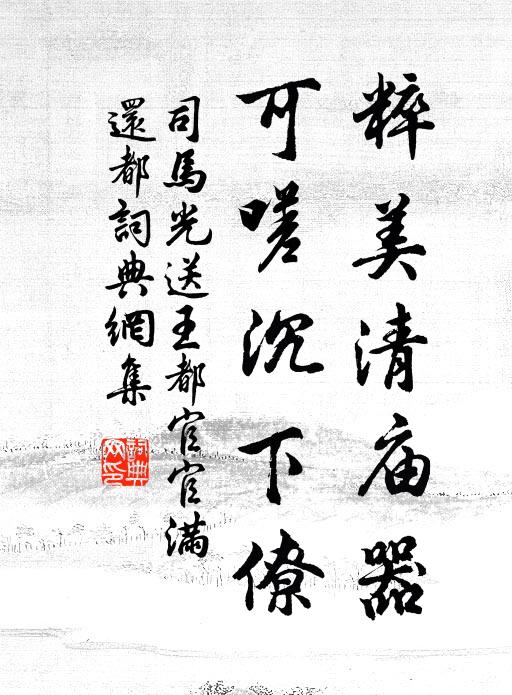 粹美清庙器
可嗟沉下僚
司馬光送王都官官滿
還都詞典網集
詞典
网印